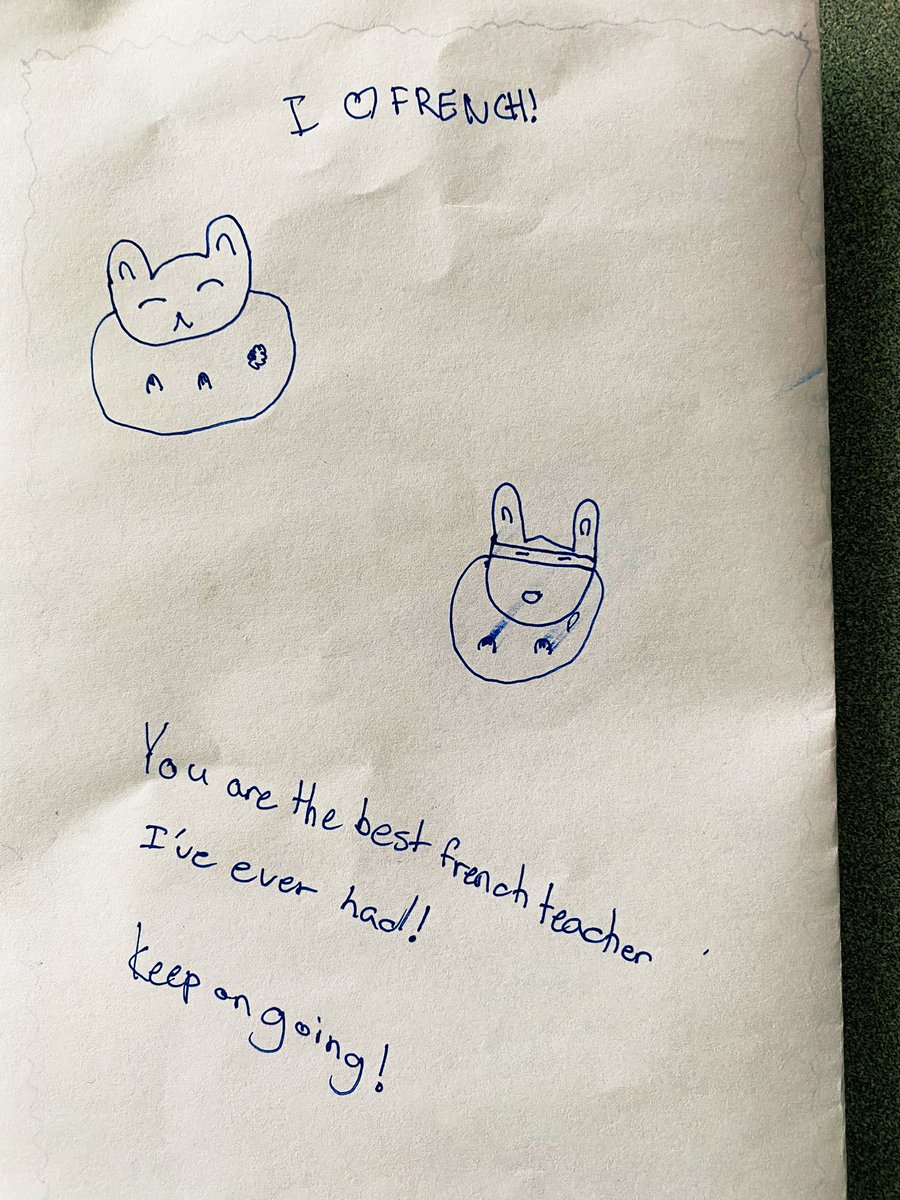 I ♡ FRENCH!
You are the best french teacher
I've ever had!
Keep on going!